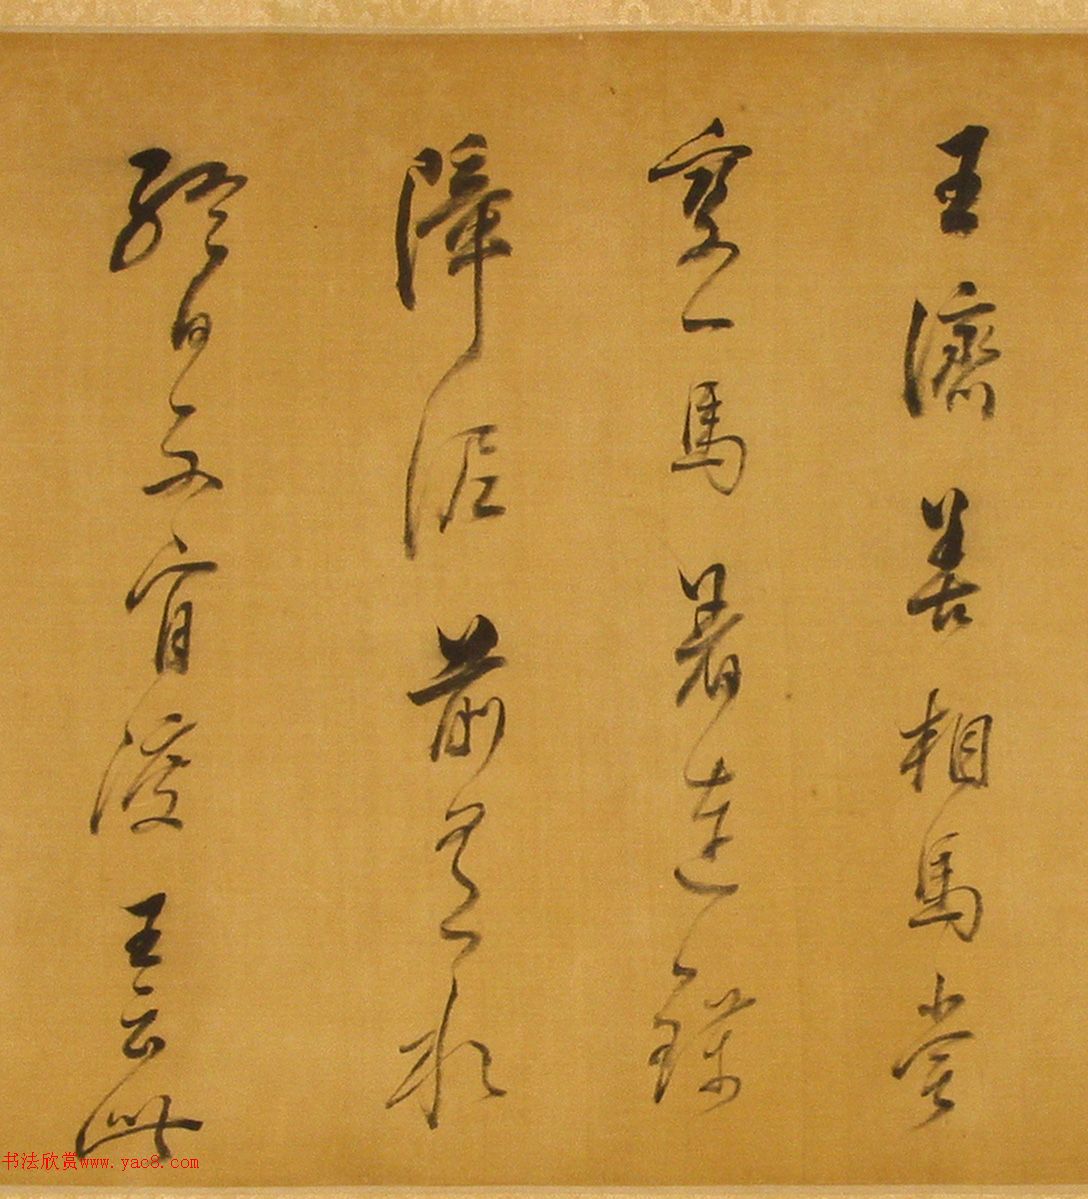 王濟善相馬嘗
乘一馬著連錢
障泥前有水
終日不肯渡王云此
书法欣赏www.yac8.com